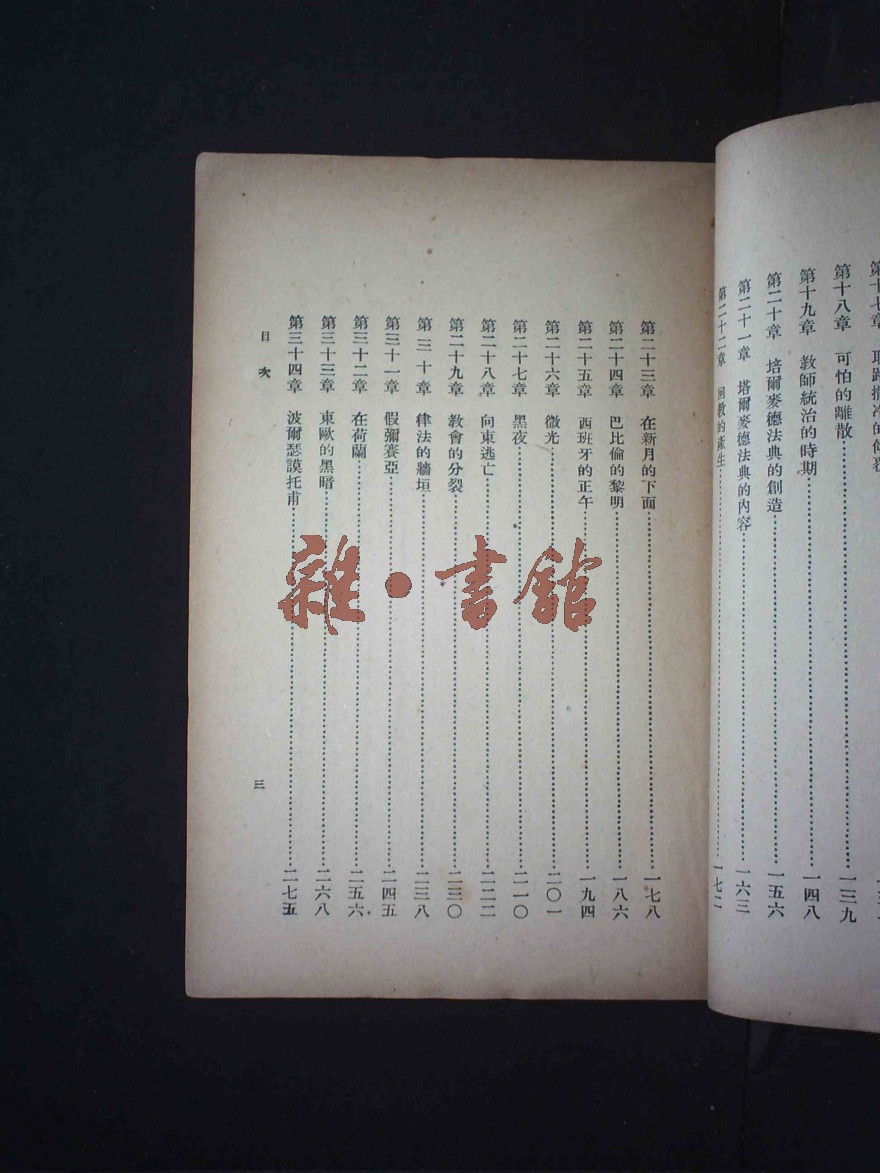 第十八章 可怕的離散 一三九
第十九章 教師統治的時期 一四八
第二十章 培爾麥德法典的創造 一五六
第二十一章 塔爾麥德法典的內容 一六三
第二十二章 回教的產生 一七二
第二十三章 在新月的下面 一七八
第二十四章 巴比倫的黎明 一八六
第二十五章 西班牙的正午 一九四
第二十六章 微光 二〇一
第二十七章 黑夜 二一〇
第二十八章 向東逃亡 二二二
第二十九章 教會的分裂 二三〇
第三十章 律法的牆垣 二三八
第三十一章 假彌賽亞 二四五
第三十二章 在荷蘭 二五六
第三十三章 東歐的黑暗 二六八
第三十四章 波爾瑟謨托甫 二七五
目次
三
雜·書館